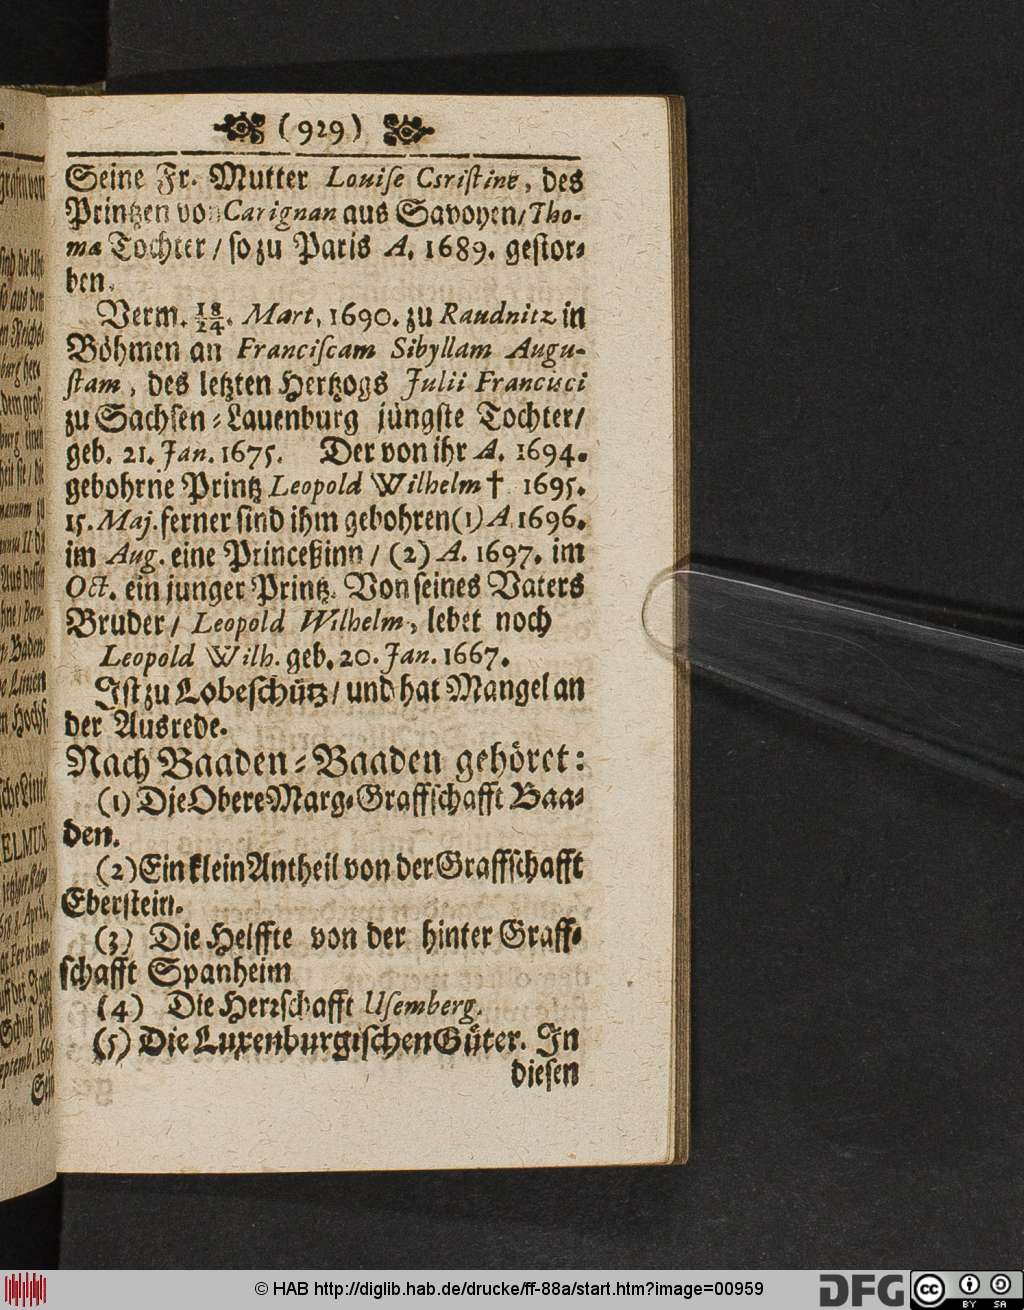 (929)
Seine Fr. Mutter Louiſe Csriſtine, des
Printzen von Carignan aus Savoyen/Tho-
ma Tochter / ſo zu Paris A. 1689. geſtor⸗
ben.
Verm. 18/24. Mart. 1690. zu Raudnitz in
Böhmen an Franciſcam Sibyllam Augu-
ſtam, des letzten Hertzogs Julii Francisci
zu Sachſen⸗Lauenburg jüngſte Tochter/
geb. 21. Jan. 1675. Der von ihr A. 1694.
gebohrne Printz Leopold Wilhelm † 1695.
15. Maj. ferner ſind ihm gebohren (1) A 1696.
im Aug. eine Princeßinn / (2) A. 1697. im
Oct. ein junger Printz. Von ſeines Vaters
Bruder / Leopold Wilhelm, lebet noch
Leopold Wilh. geb. 20. Jan. 1667.
Iſt zu Lobeſchütz / und hat Mangel an
der Ausrede.
Nach Baaden⸗Baaden gehöret:
(1) Die Obere Marg⸗Graffſchafft Baa⸗
den.
(2) Ein klein Antheil von der Graffſchafft
Eberſtein.
(3) Die Helffte von der hinter Graff⸗
ſchafft Spanheim
(4) Die Herrſchafft Uſemberg.
(5) Die Luxenburgiſchen Güter. In
dieſen
© HAB http://diglib.hab.de/drucke/ff-88a/start.htm?image=00959
DFG
cc BY SA